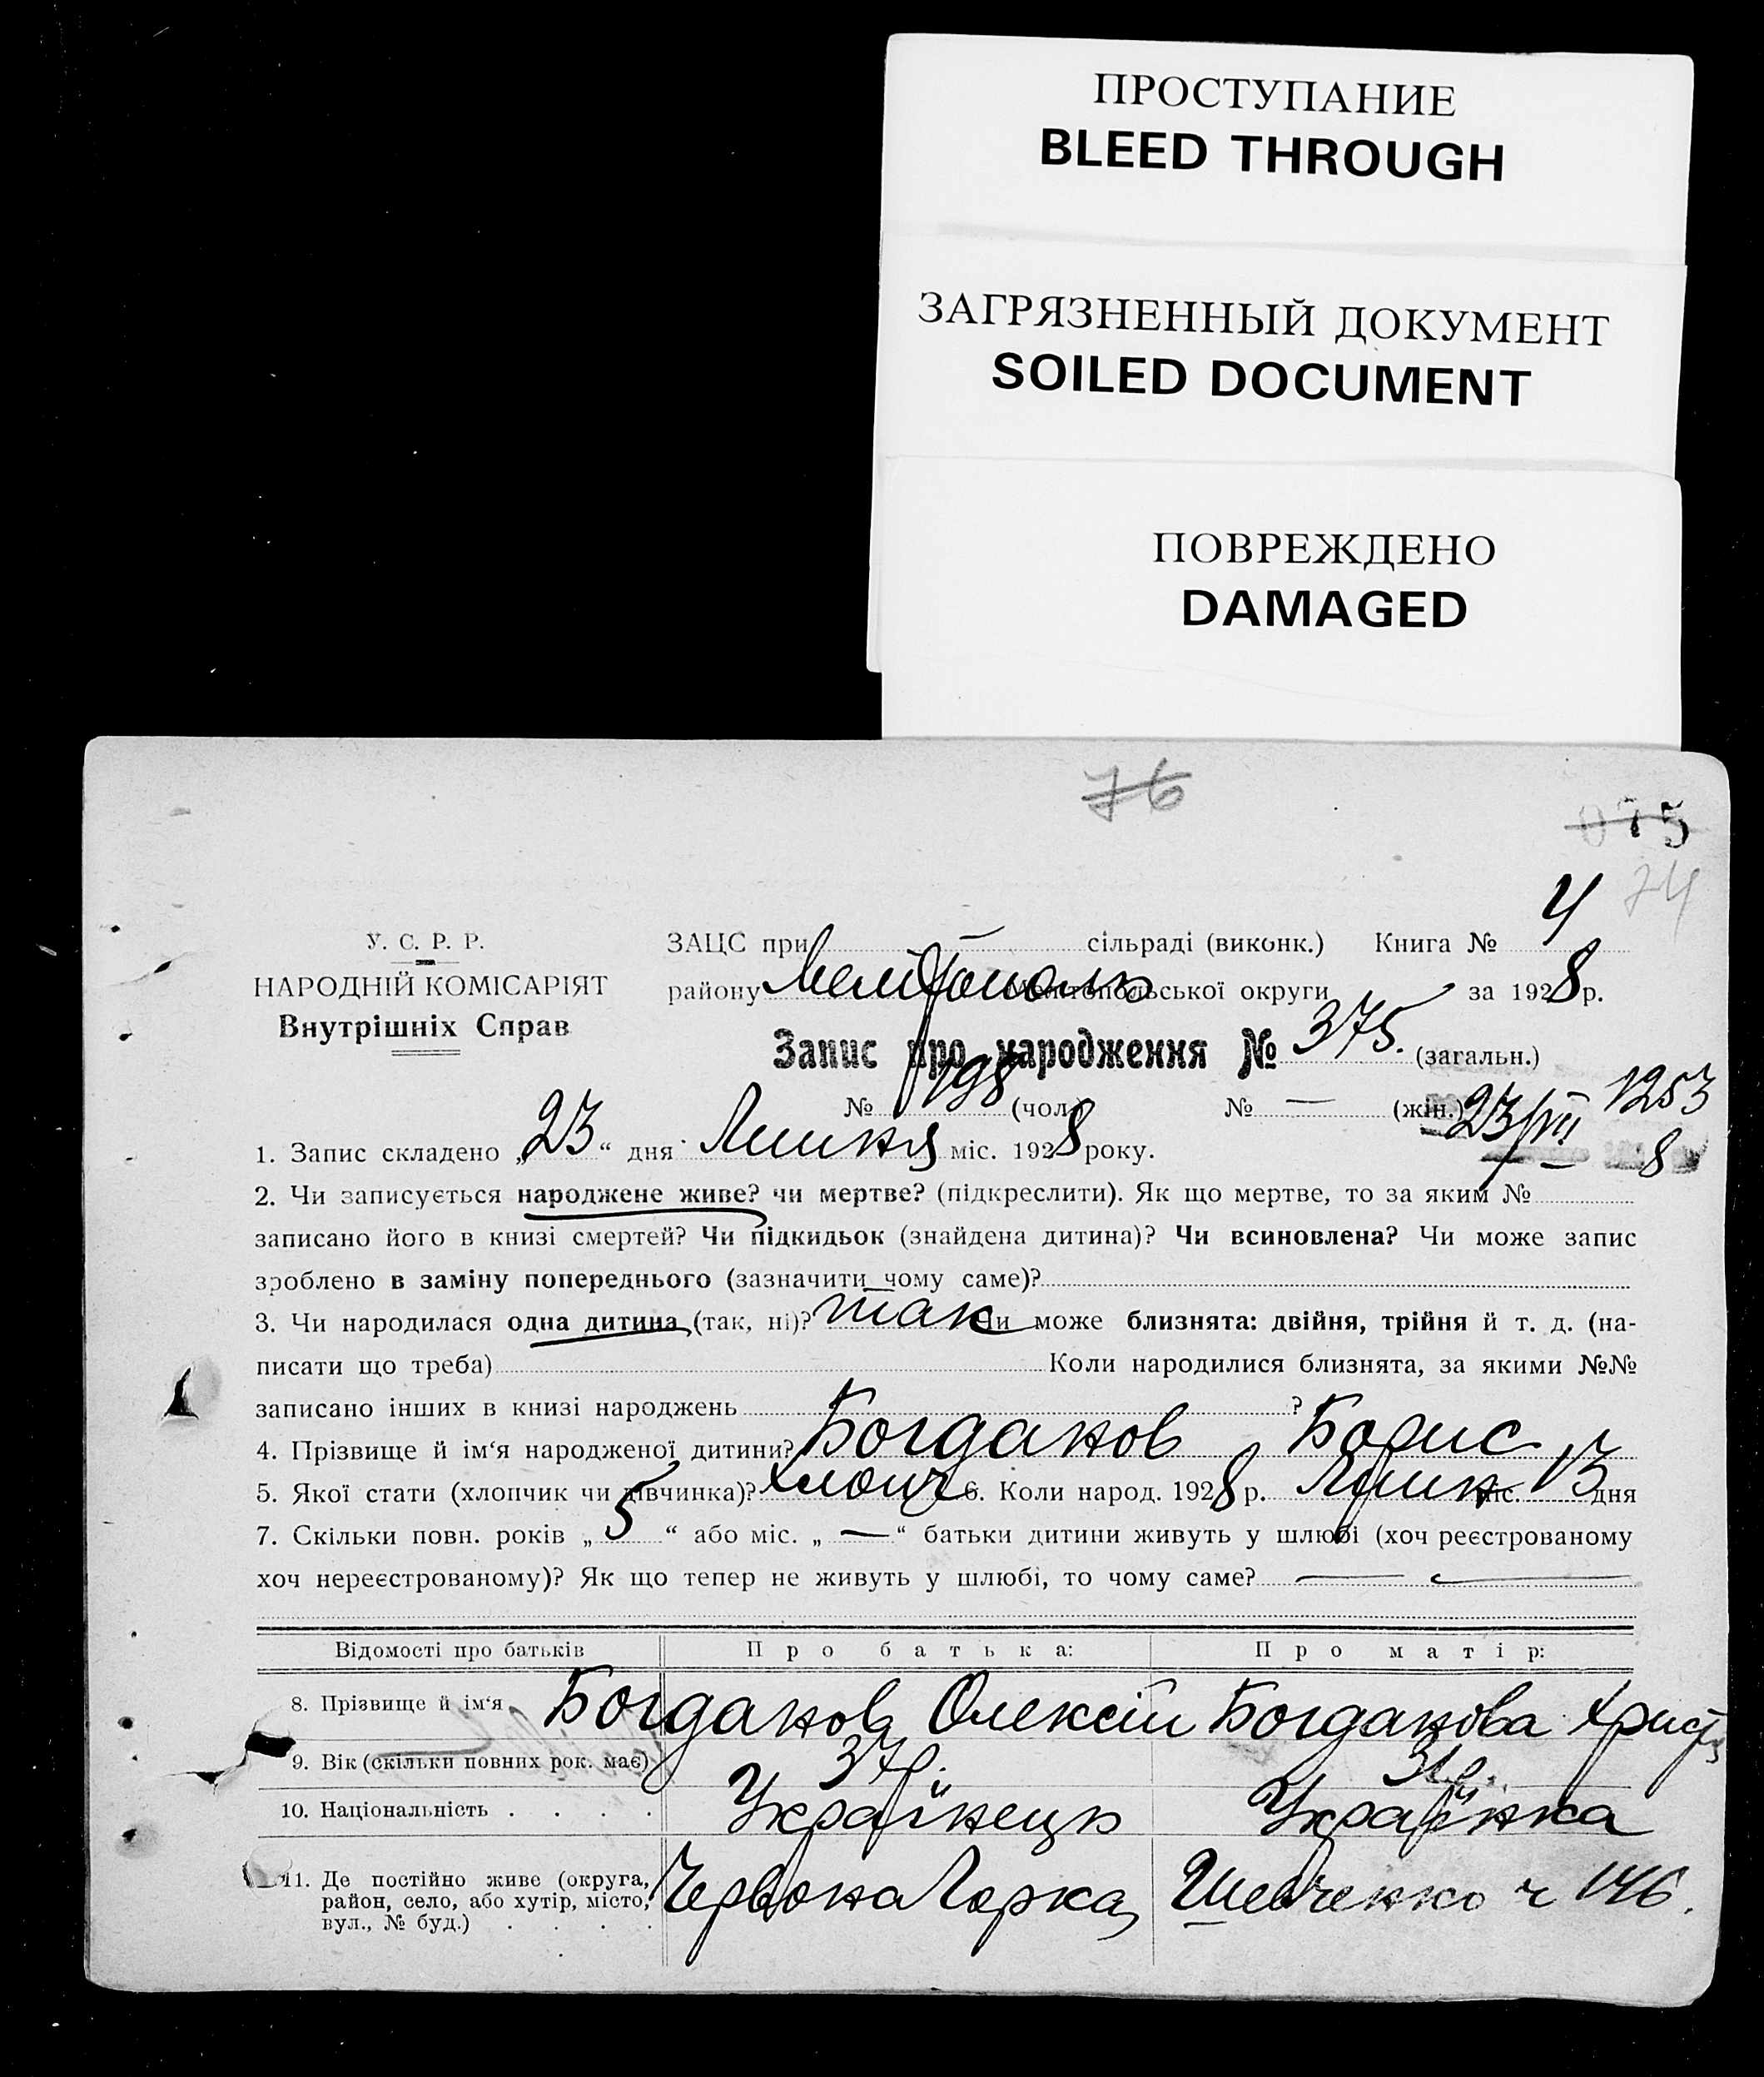 ПРОСТУПАНИЕ
BLEED THROUGH
ЗАГРЯЗНЕННЫЙ ДОКУМЕНТ
SOILED DOCUMENT
ПОВРЕЖДЕНО
DAMAGED
76
075
74
У. С. Р. Р.
НАРОДНІЙ КОМІСАРІЯТ
Внутрішніх Справ
ЗАЦС при — сільраді (виконк.) Книга № 4
району Мелітополь Мелітопольської округи за 1928 р.
Запис про народження № 375. (загальн.)
№ 198 (чол.) № — (жін.) 23/VII 8 1253
1. Запис складено „23“ дня Липня міс. 1928 року.
2. Чи записується народжене живе? чи мертве? (підкреслити). Як що мертве, то за яким №
записано його в книзі смертей? Чи підкидьок (знайдена дитина)? Чи всиновлена? Чи може запис
зроблено в заміну попереднього (зазначити чому саме)?
3. Чи народилася одна дитина (так, ні)? так Чи може близнята: двійня, трійня й т. д. (на-
писати що треба) Коли народилися близнята, за якими №№
записано інших в книзі народжень ?
4. Прізвище й ім‘я народженої дитини? Богданов Борис
5. Якої стати (хлопчик чи дівчинка)? хлопч 6. Коли народ. 1928 р. Липн міс. 13 дня
7. Скільки повн. років „ 5 “ або міс. „ — “ батьки дитини живуть у шлюбі (хоч реєстрованому
хоч нереєстрованому)? Як що тепер не живуть у шлюбі, то чому саме? — —
Відомості про батьків Про батька: Про матір:
8. Прізвище й ім‘я Богданов Олексій Богданова Христ
9. Вік (скільки повних рок. має) 37р. 31р.
10. Національність . . . . Українець Українка
11. Де постійно живе (округа,
район, село, або хутір, місто,
вул., № буд.) . . . .
Червона Горка, Шевченко ч 146.